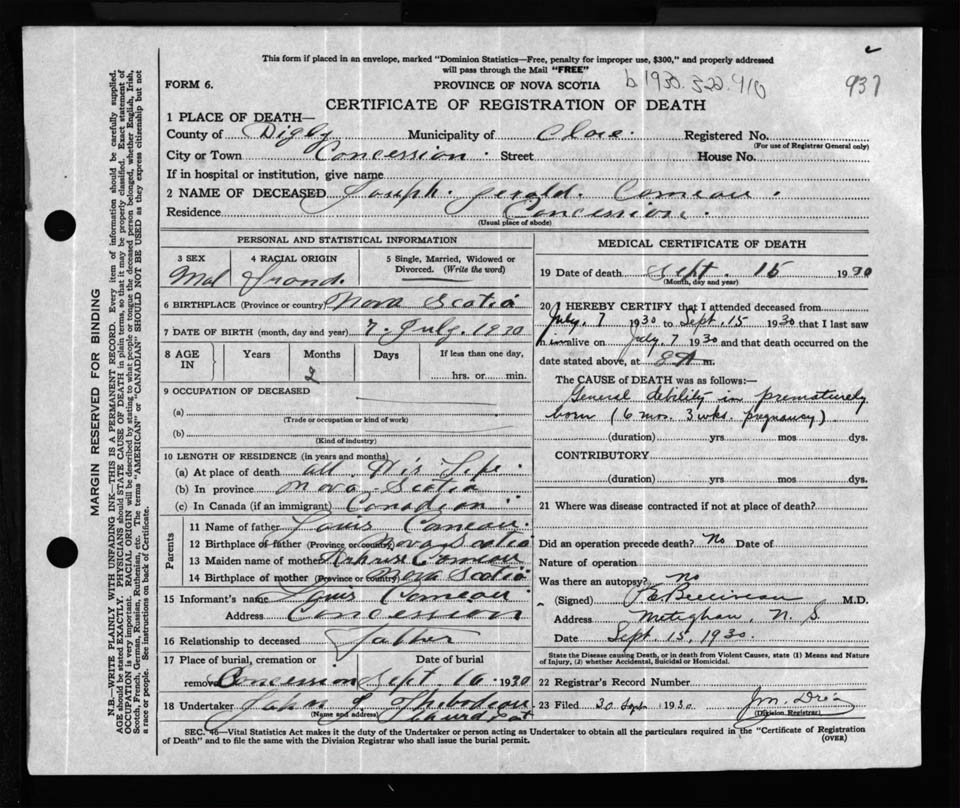 This form if placed in an envelope, marked "Dominion Statistics—Free, penalty for improper use, $300," and properly addressed
will pass through the Mail "FREE"
FORM 6.
PROVINCE OF NOVA SCOTIA
b 1930. 322. 910
937
CERTIFICATE OF REGISTRATION OF DEATH
1 PLACE OF DEATH—
County of Digby Municipality of Clare. Registered No.
(For use of Registrar General only)
City or Town Concession. Street House No.
If in hospital or institution, give name
2 NAME OF DECEASED Joseph. Gerald. Comeau.
Residence Concession.
(Usual place of abode)
PERSONAL AND STATISTICAL INFORMATION
3 SEX 4 RACIAL ORIGIN 5 Single, Married, Widowed or
Divorced. (Write the word)
Mal
6 BIRTHPLACE (Province or country) Nova Scotia
7 DATE OF BIRTH (month, day and year) 7. July. 1930
8 AGE IN Years Months Days If less than one day,
2 hrs. or min.
9 OCCUPATION OF DECEASED
(a)
(Trade or occupation or kind of work)
(b)
(Kind of industry)
10 LENGTH OF RESIDENCE (in years and months)
(a) At place of death all His Life.
(b) In province Nova Scotia
(c) In Canada (if an immigrant) Canadian
Parents
11 Name of father Louis Comeau.
12 Birthplace of father (Province or country) Nova Scotia
13 Maiden name of mother Comeau
14 Birthplace of mother (Province or country) Nova Scotia
15 Informant's name Louis Comeau
Address Concession
16 Relationship to deceased Father
17 Place of burial, cremation or Date of burial
removal Concession Sept. 16 1930
18 Undertaker John Thibodeau
(Name and address)
MEDICAL CERTIFICATE OF DEATH
19 Date of death Sept. 15 1930
(Month, day and year)
20 I HEREBY CERTIFY that I attended deceased from
July. 7 1930 to Sept. 15 1930 that I last saw
him alive on July. 7 1930 and that death occurred on the
date stated above, at 8 A m.
The CAUSE OF DEATH was as follows:—
General debility in prematurely
born (6 mos. 3 wks. pregnancy)
(duration) yrs mos dys.
CONTRIBUTORY
(duration) yrs. mos. dys.
21 Where was disease contracted if not at place of death?
Did an operation precede death? No Date of
Nature of operation
Was there an autopsy? No
(Signed) M.D.
Address Meteghan, N. S.
Date Sept 15, 1930.
State the Disease causing Death, or in death from Violent Causes, state (1) Means and Nature
of Injury, (2) whether Accidental, Suicidal or Homicidal.
22 Registrar's Record Number
23 Filed 30 Sept 1930
(Division Registrar)
SEC. 46—Vital Statistics Act makes it the duty of the Undertaker or person acting as Undertaker to obtain all the particulars required in the "Certificate of Registration
of Death" and to file the same with the Division Registrar who shall issue the burial permit. (OVER)
MARGIN RESERVED FOR BINDING
N.B.—WRITE PLAINLY WITH UNFADING INK—THIS IS A PERMANENT RECORD. Every item of information should be carefully supplied.
AGE should be stated EXACTLY. PHYSICIANS should STATE CAUSE OF DEATH in plain terms, so that it may be properly classified. Exact statement of
OCCUPATION is very important. RACIAL ORIGIN will be described by stating to what people or tongue the deceased person belonged, whether English, Irish,
Scotch, French, German, Russian, Ruthenian, etc. The terms "AMERICAN" or "CANADIAN" SHOULD NOT BE USED as they express citizenship but not
a race or people. See instructions on back of Certificate.